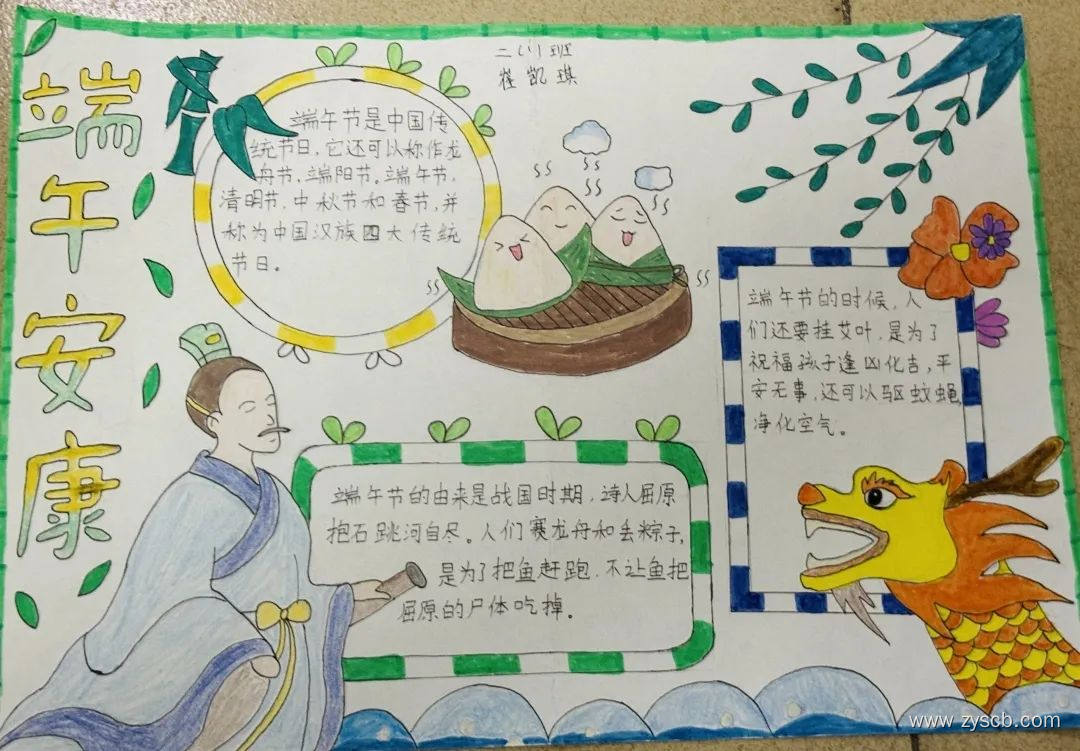 端午安康
二（1）班
崔凯琪
端午节是中国传
统节日，它还可以称作龙
舟节，端阳节。端午节，
清明节，中秋节和春节，并
称为中国汉族四大传统
节日。
端午节的时候，人
们还要挂艾叶，是为了
祝福孩子逢凶化吉，平
安无事，还可以驱蚊蝇，
净化空气。
端午节的由来是战国时期，诗人屈原
抱石跳河自尽。人们赛龙舟和丢粽子，
是为了把鱼赶跑，不让鱼把
屈原的尸体吃掉。
www.zyscb.com